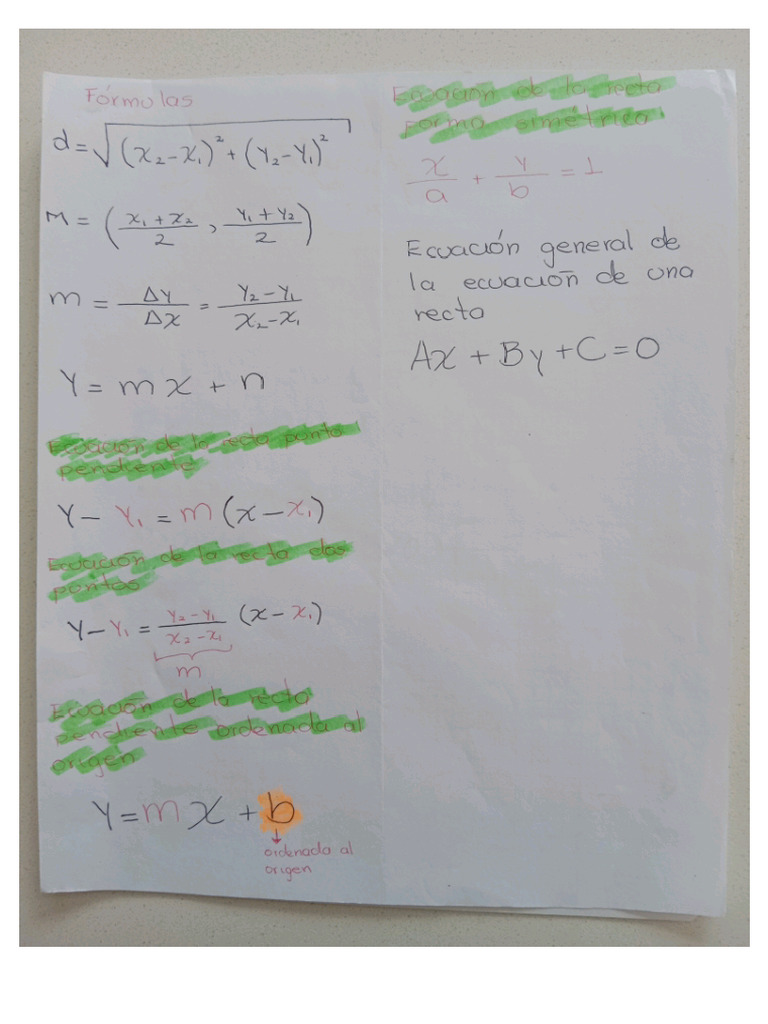 Fórmulas
d = √((x₂-x₁)² + (y₂-y₁)²)
M = ((x₁ + x₂)/2 , (y₁ + y₂)/2)
m = Δy/Δx = (y₂-y₁)/(x₂-x₁)
y = mx + n
Ecuación de la recta punto
pendiente
y - y₁ = m (x - x₁)
Ecuación de la recta dos
puntos
y - y₁ = (y₂-y₁)/(x₂-x₁) (x - x₁)
m
Ecuación de la recta
pendiente ordenada al
origén
y = mx + b
ordenada al
origen
Ecuación de la recta
forma simétrica
x/a + y/b = 1
Ecuación general de
la ecuación de una
recta
Ax + By + C = 0